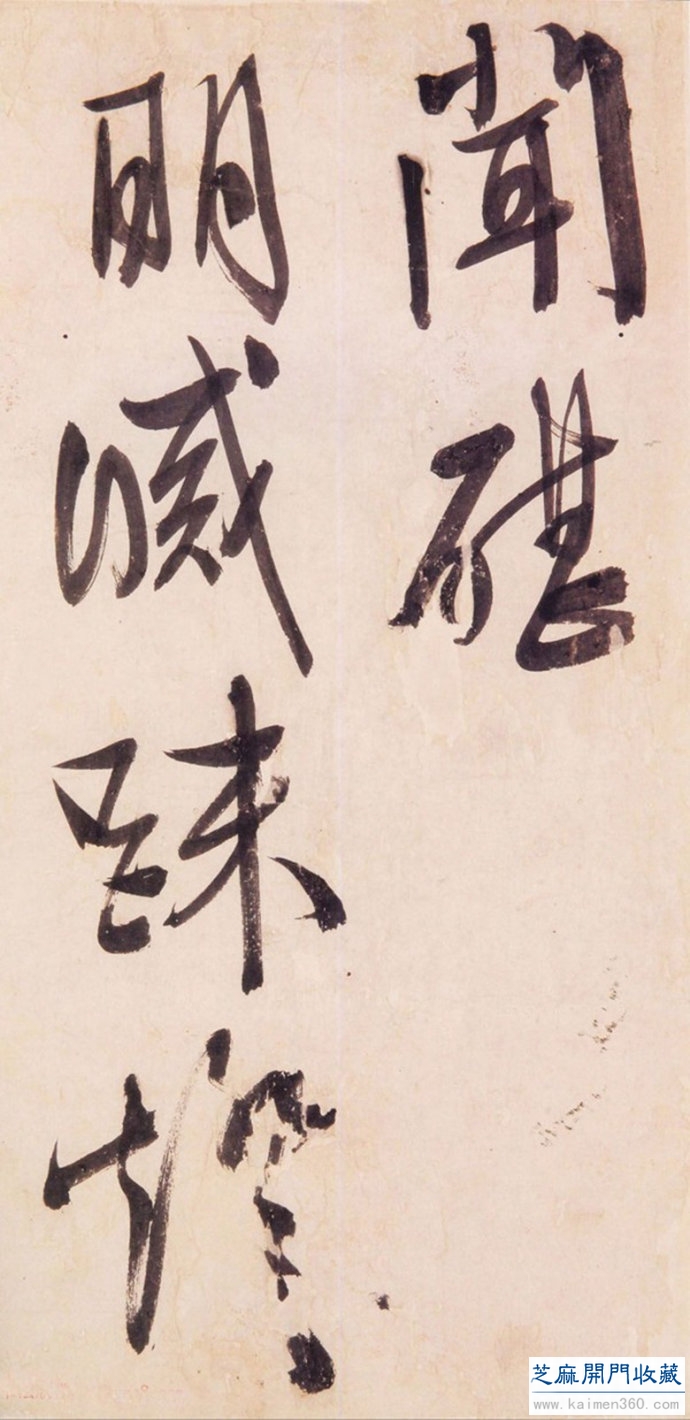 聞碪
明滅踈燈
芝麻開門收藏
www.kaimen360.com